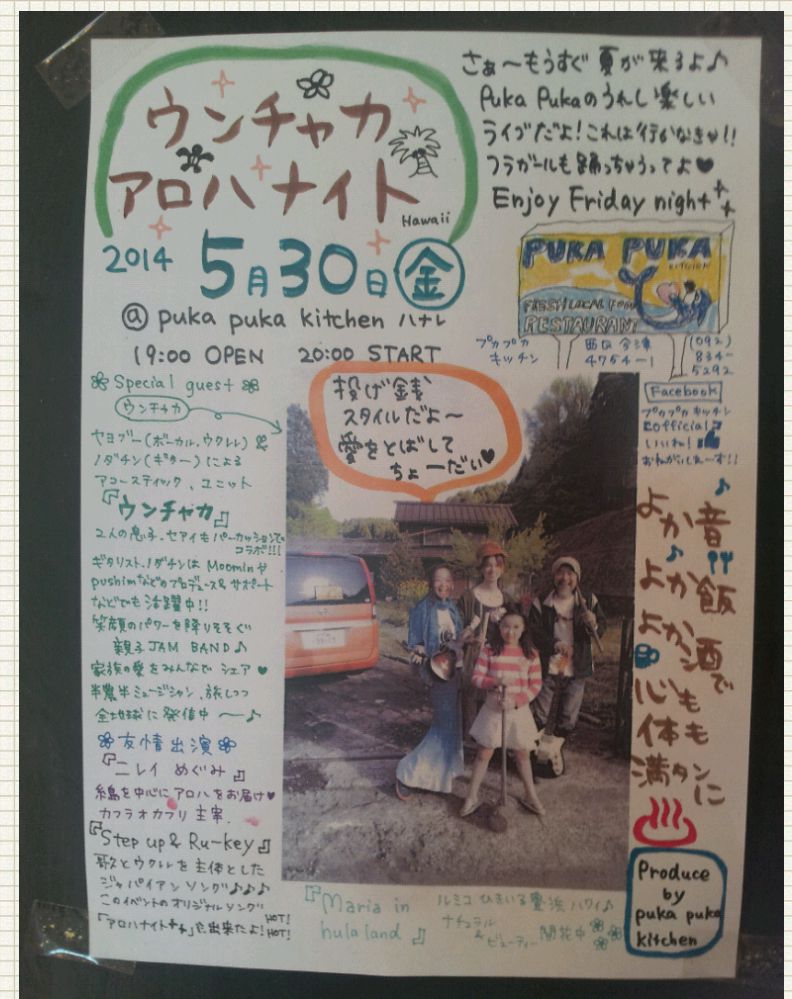 ウンチャカ
アロハナイト
Hawaii
2014 5月30日 金
@ puka puka kitchen ハナレ
19:00 OPEN 20:00 START
さぁ〜もうすぐ夏が来るよ♪
Puka Pukaのうれし楽しい
ライブだよ!これは行かなきゃ!!
フラガールも踊っちゃうってよ♥
Enjoy Friday night
PUKA PUKA
KITCHEN
FRESH LOCAL FOOD
RESTAURANT
プカプカ
キッチン
西区今津
4754-1
(092)
834-
5292
Facebook
プカプカキッチン
Official
いいね!
おねがいしまーす!!
Special guest
ウンチャカ
ヤヨブー(ボーカル,ウクレレ)
ノダチン(ギター)による
アコースティック、ユニット
『ウンチャカ』
2人の息子、セアイもパーカッションで
コラボ!!!
ギタリスト、ノダチンは Moominや
pushimなどのプロデュース&サポート
などでも活躍中!!
笑顔のパワーを降りそそぐ
親子JAM BAND♪
家族の愛をみんなでシェア♥
半農半ミュージシャン、旅しつつ
全地球に発信中〜♪
友情出演
『ニレイ めぐみ』
糸島を中心にアロハをお届け♥
カフラオカフリ 主宰.
『Step up & Ru-key』
歌とウクレレを主体とした
ジャパイアンソング♪♪♪
このイベントのオリジナルソング
「アロハナイト」も出来たよ! HOT! HOT!
投げ銭
スタイルだよ〜
愛をとばして
ちょーだい♥
よか音
よか飯
よか酒で
心も
体も
満タンに
『Maria in
hula land』
ルミコ ひきいる 愛浜ハワイ♪
ナチュラル
&
ビューティー 開花中
Produce
by
puka puka
kitchen